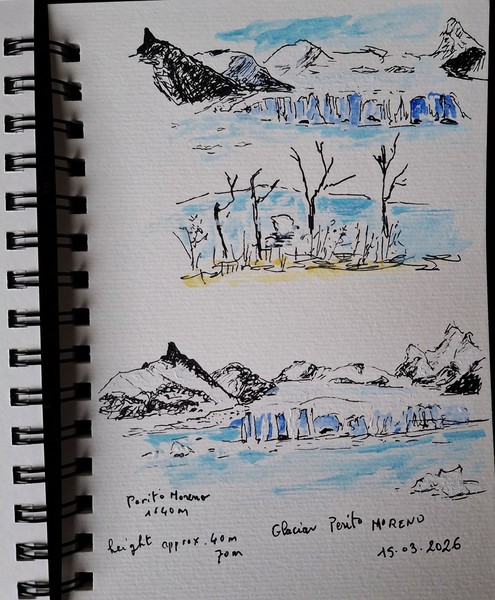 Perito Moreno
1640m
height approx. 40m
70m
Glaciar Perito MORENO
15.03.2026